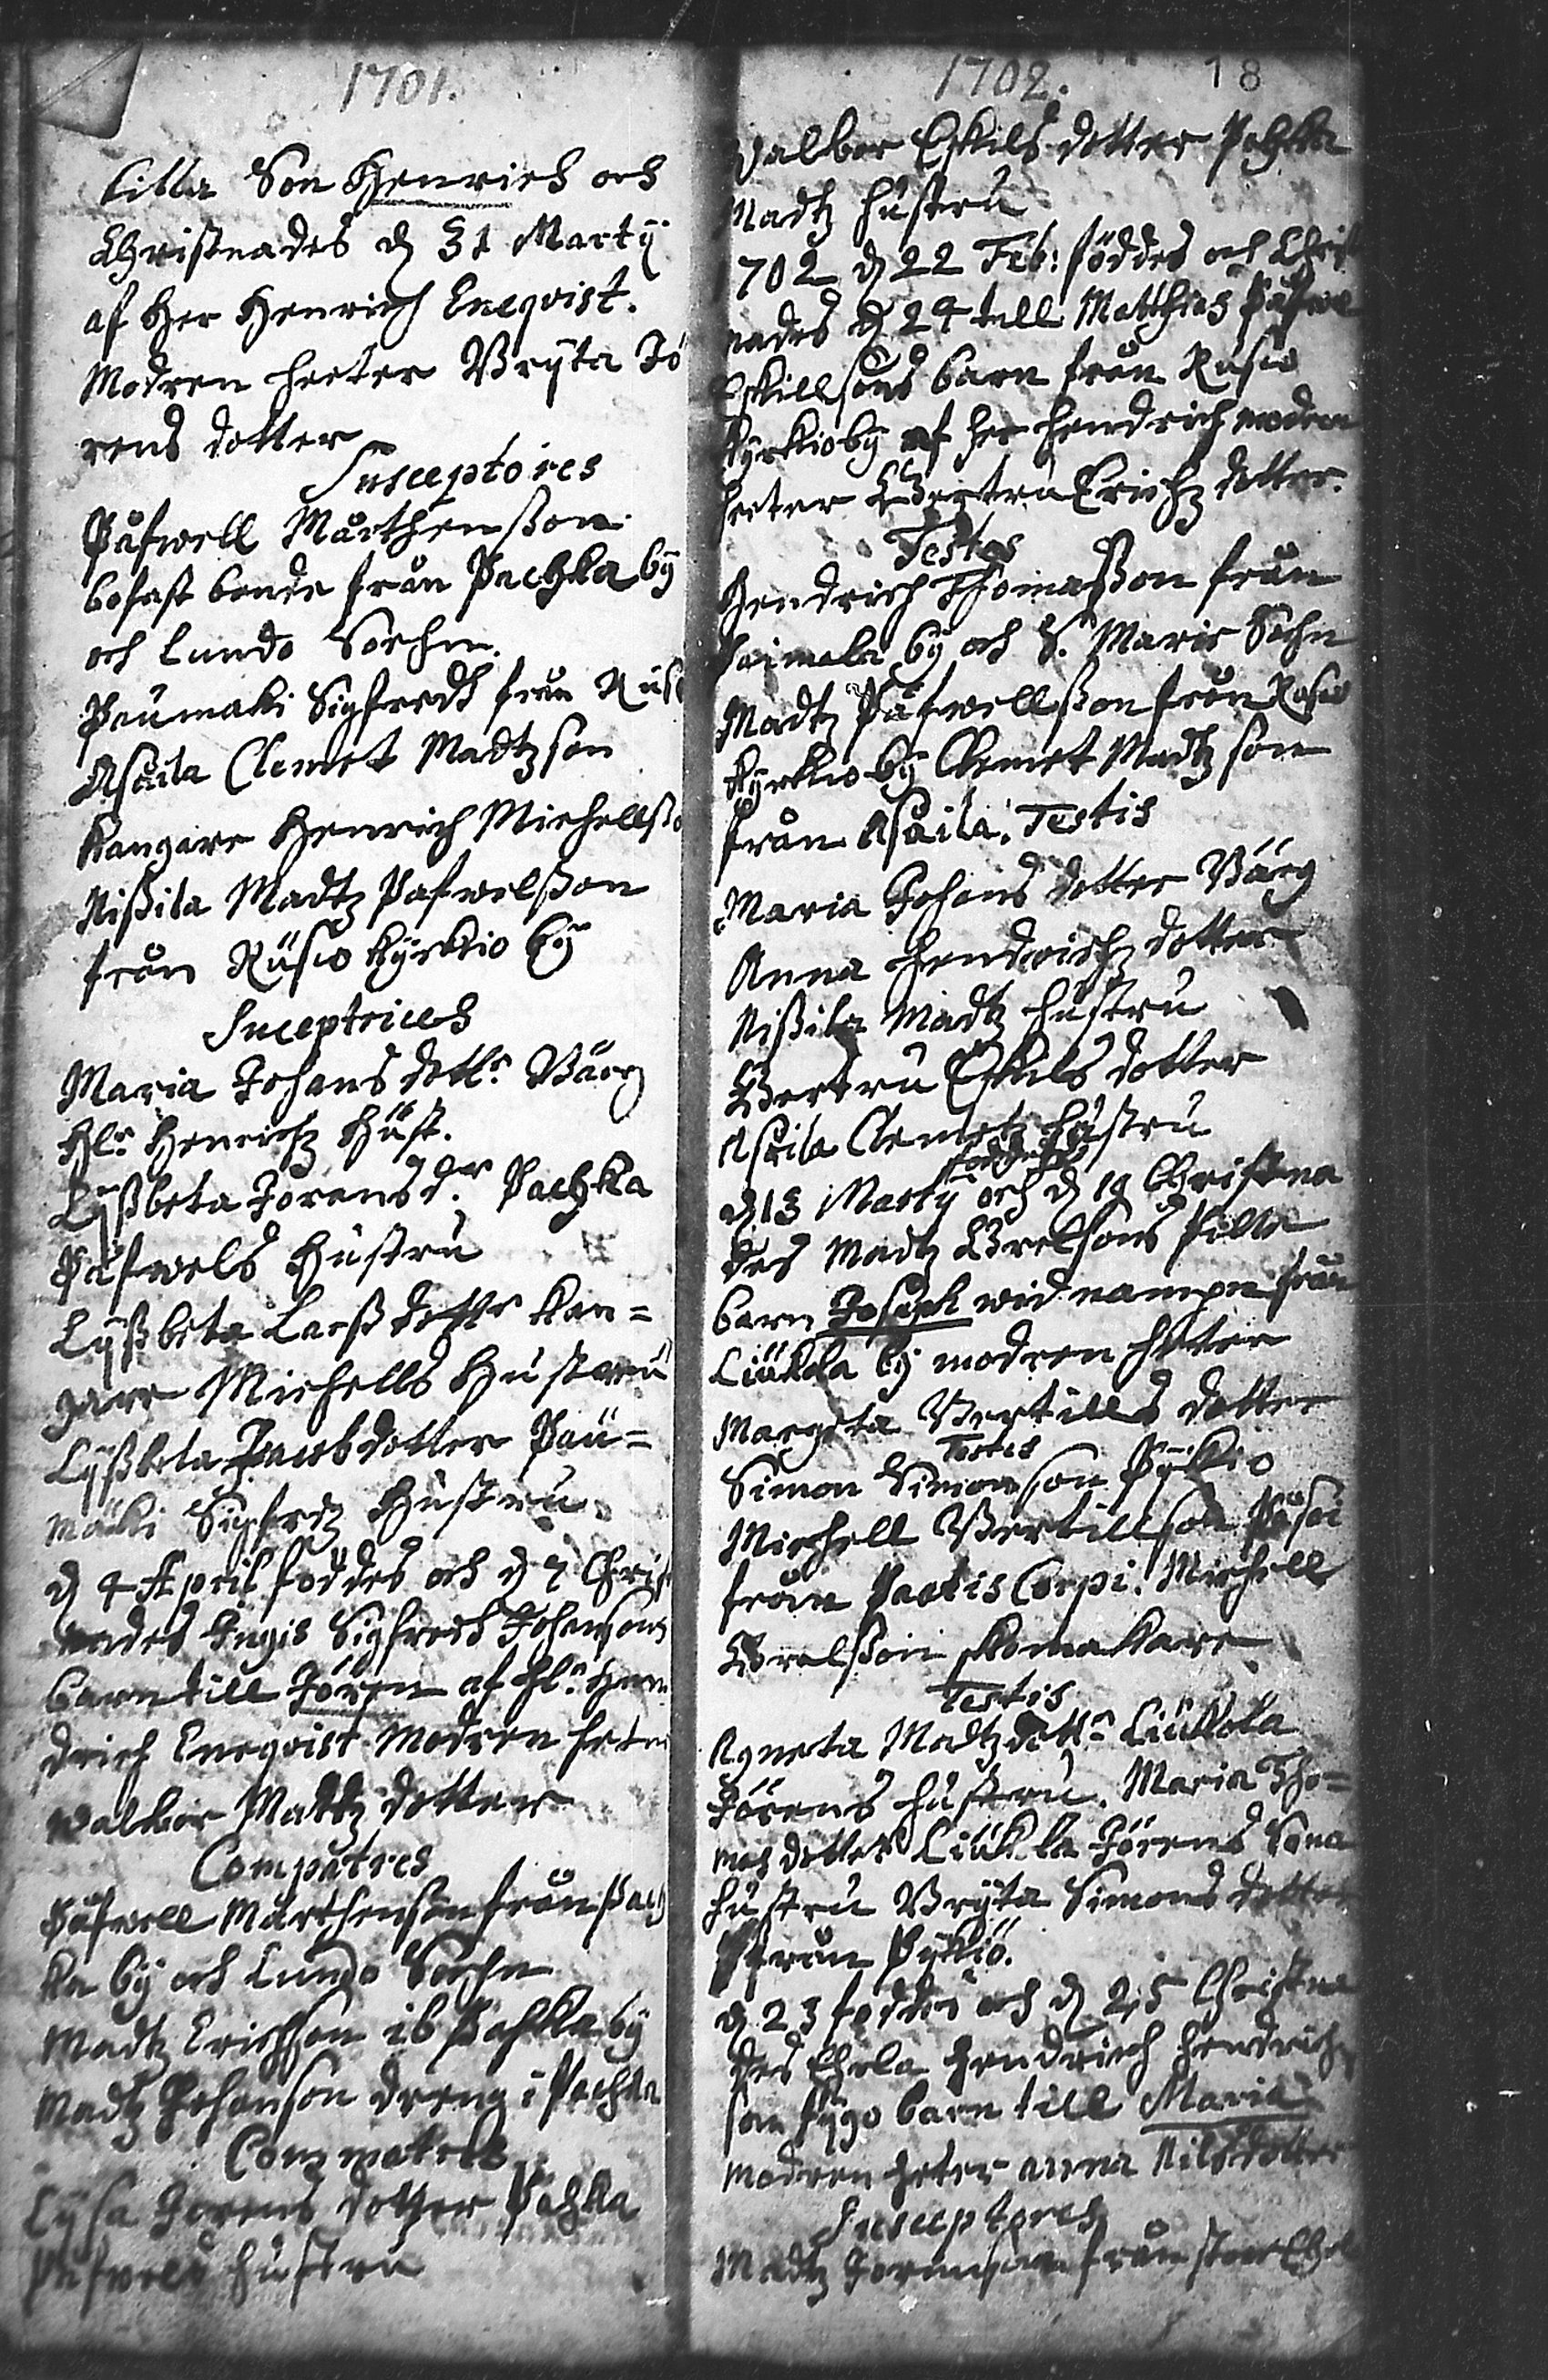 1701.
lilla Son Henrich och
Christnades d 31 Martij
af Her Henrich Eneqvist.
Modren heeter Bryta Jö
rens dotter
Susceptores
Påfwell Mårthensson
bofast bonde från Pachka by
och Lundo Sochn.
Paumaki Sigfredh från Rüs
Asaila Clemet Madtzson
Kangare Henrich Michellsso
Nissila Madtz Pafwelsson
från Rüsio kyrkio by
Suceptrices
Maria Johans dottr Bärg
Hlr Henrichz Hust.
Lyssbeta Jorens dr Pachka
Påfwels Hustru
Lyssbeta Larss dottr Kan=
gare Michells Hustru
Lyssbeta Jacobdotter Pau=
mäki Sigfredz Hustru
d 4 April föddes och d 7 Christ
nades Sigfredh Johansons
barn till Jören af Hr Hen
drich Eneqvist Modren heter
walbor Mattz dotter
Compatres
Påfwell Mårthenson från Pach
ka by och Lundo Sochn
Madtz Erichson ib Pahka by
Madtz Johanson dreng i Pachka
Commatres
Lysa Jorens dotter Pahka
Påfwels hustru
1702. 18
Valbor Eskils dotter Pahka
Madtz hustru
1702 d 22 Feb: föddes och Christ
nades d 24 till Matthias Påfwel
Eskillsons barn från Rusio
kyrkioby af her Hendrich modren
heeter Giertru Erichz dotter.
Testes
Hendrich Thomasson från
Saimala by och S. Marie Sochn
Madtz Påfwellsson från Rusio
kyrkio by Clemet Madtzson
från Asaila. Testis
Maria Johans dotter Bärg
Anna Hendrichz dotter
Nissila Madtz hustru
Giertru Eskils dotter
Asaila Clemetz hustru
föddes
d 13 Martij och d 19 Christna
des Madtz Grelsons Pilta
barn Joseph wid nampn från
Liukola by modren heter
Margeta Bertills dotter
Testes
Simon Simonson Pykiö
Michell Bertillson
från Michell
Grelsson skomakare
Testis
Agneta Madtzdottr Liukola
Jörens hustru. Maria Tho=
mas dotter Liukla Jörens Sona
hustru Bryta Simons dotter
från Pykiö.
d 23 föddes och d 25 Christna
des Ehrla Hendrich Hendrich
son pigo barn till Maria
modren heter anna Nils dotter
Susceptores
Madtz Jorenson från stoor